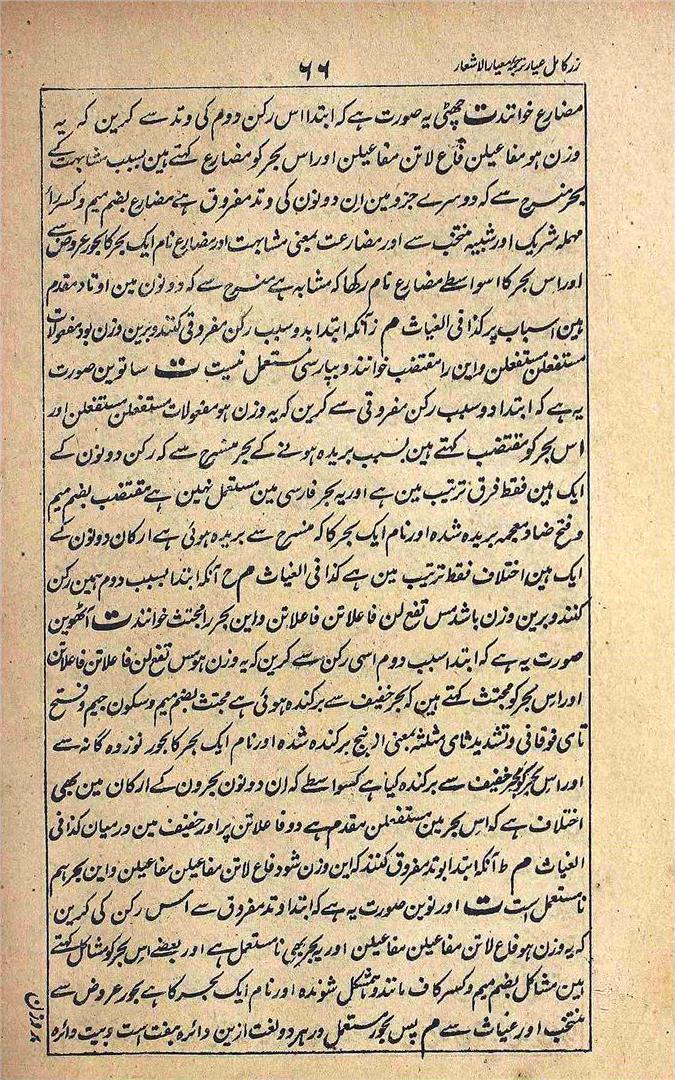 زر کامل عیار ترجمہ معیار الاشعار
۶۶
مضارع خوانند ت چھٹی یہ صورت ہے کہ ابتدا اس رکن دوم کی وتد سے کرین کہ یہ
وزن ہو مفاعیلن فاع لاتن مفاعیلن اور اس بحر کو مضارع کہتے ہین بسبب مشابہت کے
بحر منسرح سے کہ دوسرے جزو مین ان دونون کی وتد مفروق ہے مضارع بضم میم و کسر راء
مہملہ شریک اور شبیہ منتخب سے اور مضارعت بمعنی مشابہت اور مضارع نام ایک بحر کا بحور عروض سے
اور اس بحر کا اسواسطے مضارع نام رکھا کہ مشابہ ہے منسرح سے کہ دونون مین اوتاد مقدم
ہین اسباب پر کذا فی الغیاث م ز آنکہ ابتدا بدو سبب رکن مفروقی کنند و برین وزن بود مفعولات
مستفعلن مستفعلن و این را مقتضب خوانند و بپارسی مستعمل نیست ت ساتوین صورت
یہ ہے کہ ابتدا دو سبب رکن مفروقی سے کرین کہ یہ وزن ہو مفعولات مستفعلن مستفعلن اور
اس بحر کو مقتضب کہتے ہین بسبب بریدہ ہونے کے بحر منسرح سے کہ رکن دونون کے
ایک ہین فقط فرق ترتیب مین ہے اور یہ بحر فارسی مین مستعمل نہین ہے مقتضب بضم میم
و فتح ضاد معجمہ بریدہ شدہ اور نام ایک بحر کا کہ منسرح سے بریدہ ہوئی ہے ارکان دونون کے
ایک ہین اختلاف فقط ترتیب مین ہے کذا فی الغیاث م ح آنکہ ابتدا بسبب دوم ہمین رکن
کنند و برین وزن باشد مس تفع لن فاعلاتن فاعلاتن و این بحر را مجتث خوانند ت آٹھوین
صورت یہ ہے کہ ابتدا سبب دوم اسی رکن سے کرین کہ یہ وزن ہو مس تفع لن فاعلاتن فاعلاتن
اور اس بحر کو مجتث کہتے ہین کہ بحر خفیف سے برکندہ ہوئی ہے مجتث بضم میم و سکون جیم و فتح
تای فوقانی و تشدید ثای مثلثہ بمعنی از بیخ برکندہ شدہ اور نام ایک بحر کا بحور نوزدہ گانہ سے
اور اس بحر کو بحر خفیف سے برکندہ کیا ہے کسواسطے کہ ان دونون بحرون کے ارکان مین بھی
اختلاف ہے کہ اس بحر مین مستفعلن مقدم ہے دو فاعلاتن پر اور خفیف مین درمیان کذا فی
الغیاث م ط آنکہ ابتدا بوتد مفروق کنند کہ این وزن شود فاع لاتن مفاعیلن مفاعیلن و این بحر ہم
نامستعمل است ت اور نوین صورت یہ ہے کہ ابتدا وتد مفروق سے اس رکن کی کرین
کہ یہ وزن ہو فاع لاتن مفاعیلن مفاعیلن اور یہ بحر بھی نامستعمل ہے اور بعضے اس بحر کو مشاکل کہتے
ہین مشاکل بضم میم و کسر کاف مانند و ہمشکل شوندہ اور نام ایک بحر کا ہے بحور عروض سے
منتخب اور غیاث سے م پس بحور مستعمل در ہر دو لغت ازین دائرہ ہفت است و بیت دائرہ